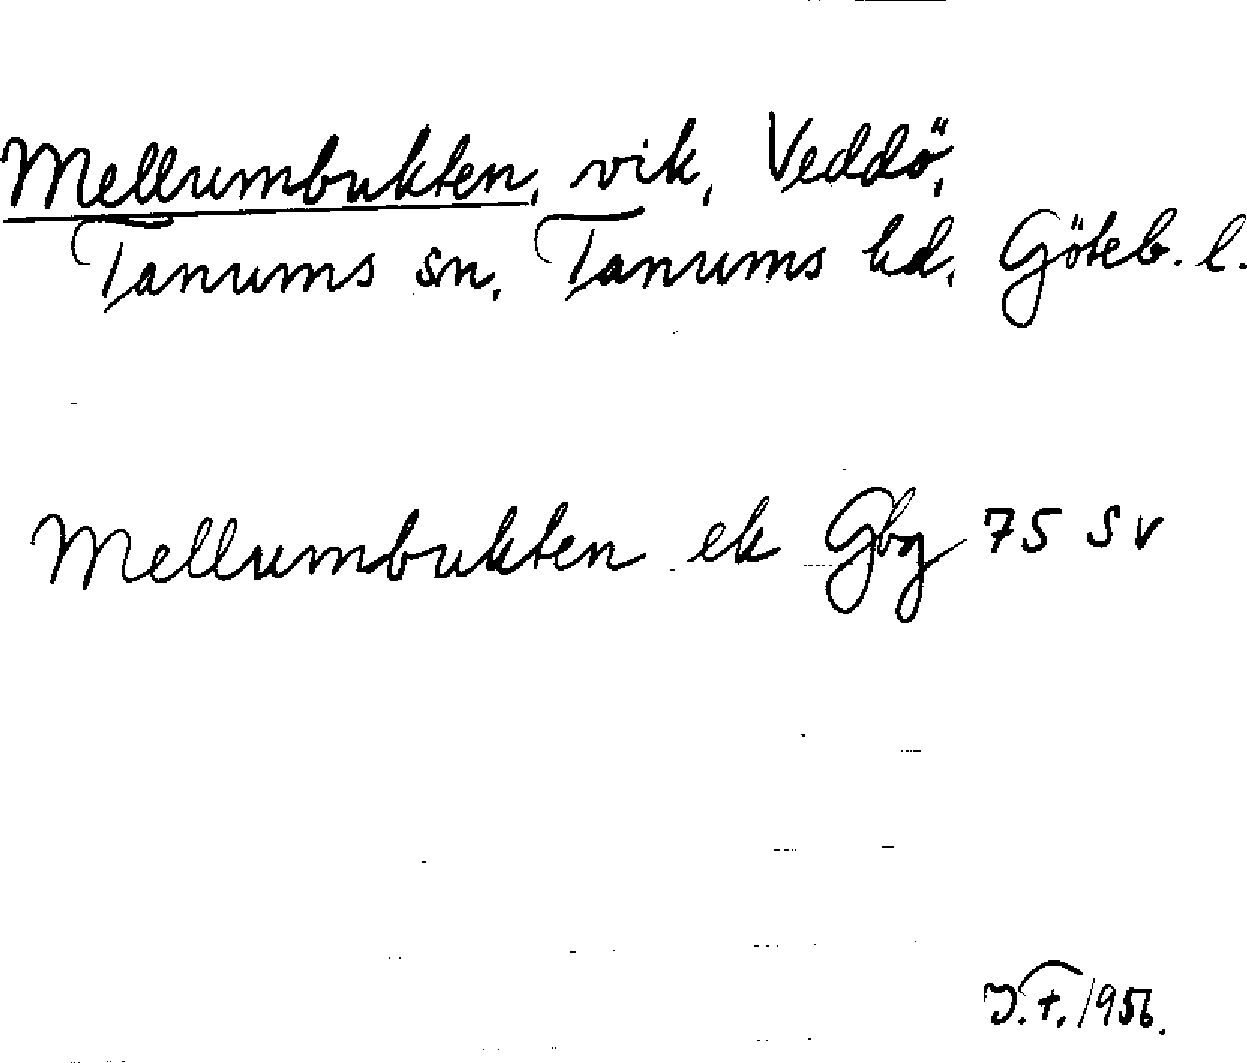 Mellumbukten, vik, Veddö,
Tanums sn, Tanums hd, Göteb. l.
Mellumbukten ek Gbg 75 SV
J.F. 1956.